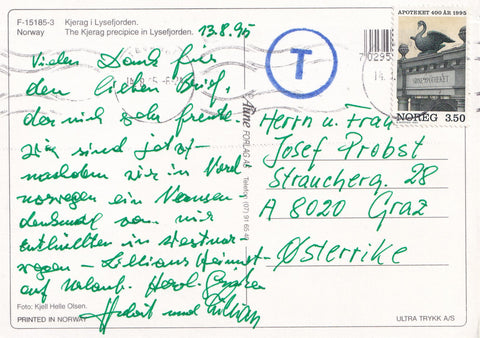 F-15185-3 Kjerag i Lysefjorden.
Norway The Kjerag precipice in Lysefjorden.
13.8.95
Vielen Dank für
den lieben Brief,
der mich sehr freute.
Wir sind jetzt -
nachdem wir in Nord
norwegen ein
denkmal von mir
enthüllten in
- Lillians Heimat -
auf Urlaub. Herzl.
und Lillian
Foto: Kjell Helle Olsen.
PRINTED IN NORWAY
Aune FORLAG AS Telefon (07) 91 65 44
T
APOTEKET 400 ÅR 1995
SVANEAPOTHEKET
NOREG 3.50
70295
14.
Herrn u. Frau
Josef Probst
Straucherg. 28
A 8020 Graz
Østerrike
ULTRA TRYKK A/S